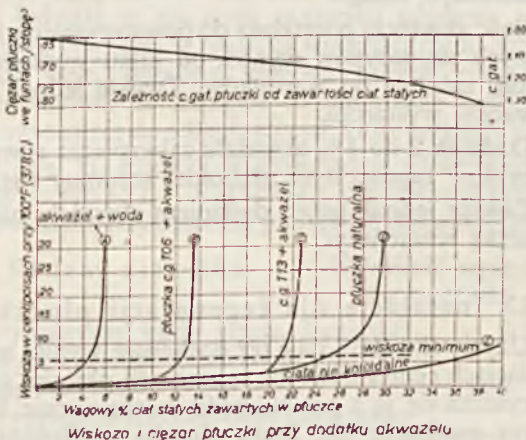 Ciężar płuczki
we funtach/stopę³
65
75
80
1.00
1.10
1.20
1.30
c. gat.
Zależność c. gat. płuczki od zawartości ciał stałych
Wiskoza w centipoisach przy 100°F (37,8C)
30
25
20
15
10
5
akważel + woda
płuczka c.g 1.06 + akważel
c.g 1.13 + akważel
płuczka naturalna
wiskoza minimum
ciała nie koloidalne
2 6 8 10 12 14 16 18 20 22 24 26 28 30 32 34 36 38 40
Wagowy % ciał stałych zawartych w płuczce
Wiskoza i ciężar płuczki przy dodatku akważelu